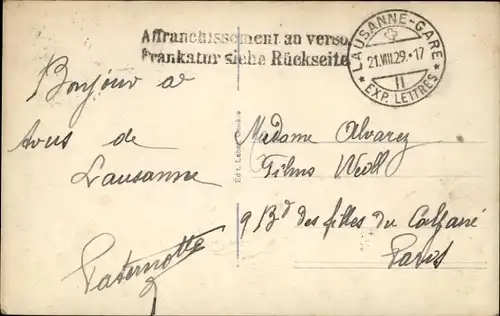 Affranchissement au verso
Frankatur siehe Rückseite
LAUSANNE-GARE
21.VIII.29.-17
II
* EXP. LETTRES *
Bonjour a
tous de
Lausanne
Paternotte
Madame Alvarez
Films Weill
9 Bd des filles du Calvaire
Paris